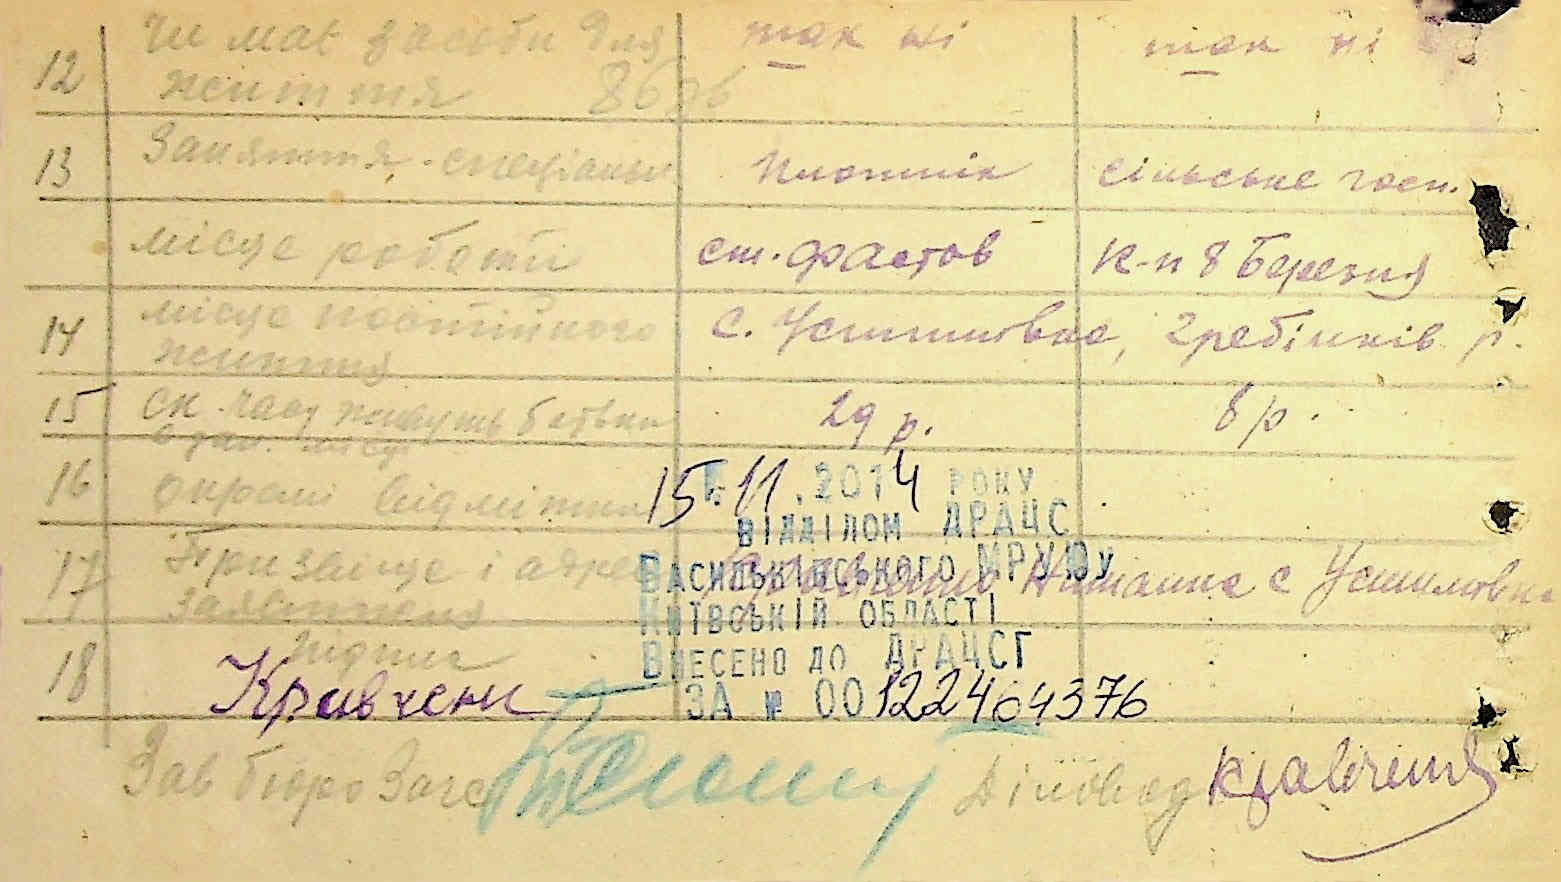 12 Чи має засоби для так ні так ні
життя
13 Заняття. спеціальн плотнік сільське госп.
місце роботи ст. Фастов К-п 8 Березня
14 місце постійного с. Устимовка, Гребінків р.
життя
15 ск. часу живуть батьки 29 р. 8 р.
в дан. місці
16 окремі відмітки
15.11.2014 РОКУ
ВІДДІЛОМ ДРАЦС
17 Прізвище і адрес Ж с Устимовка
ВАСИЛЬКІВСЬКОГО МРУЮУ
заявителя
КИЇВСЬКІЙ ОБЛАСТІ
18 підпис
ВНЕСЕНО ДО ДРАЦСГ
Кравченк
ЗА № 00122464376
Зав бюро Загс Діловод Кравченко